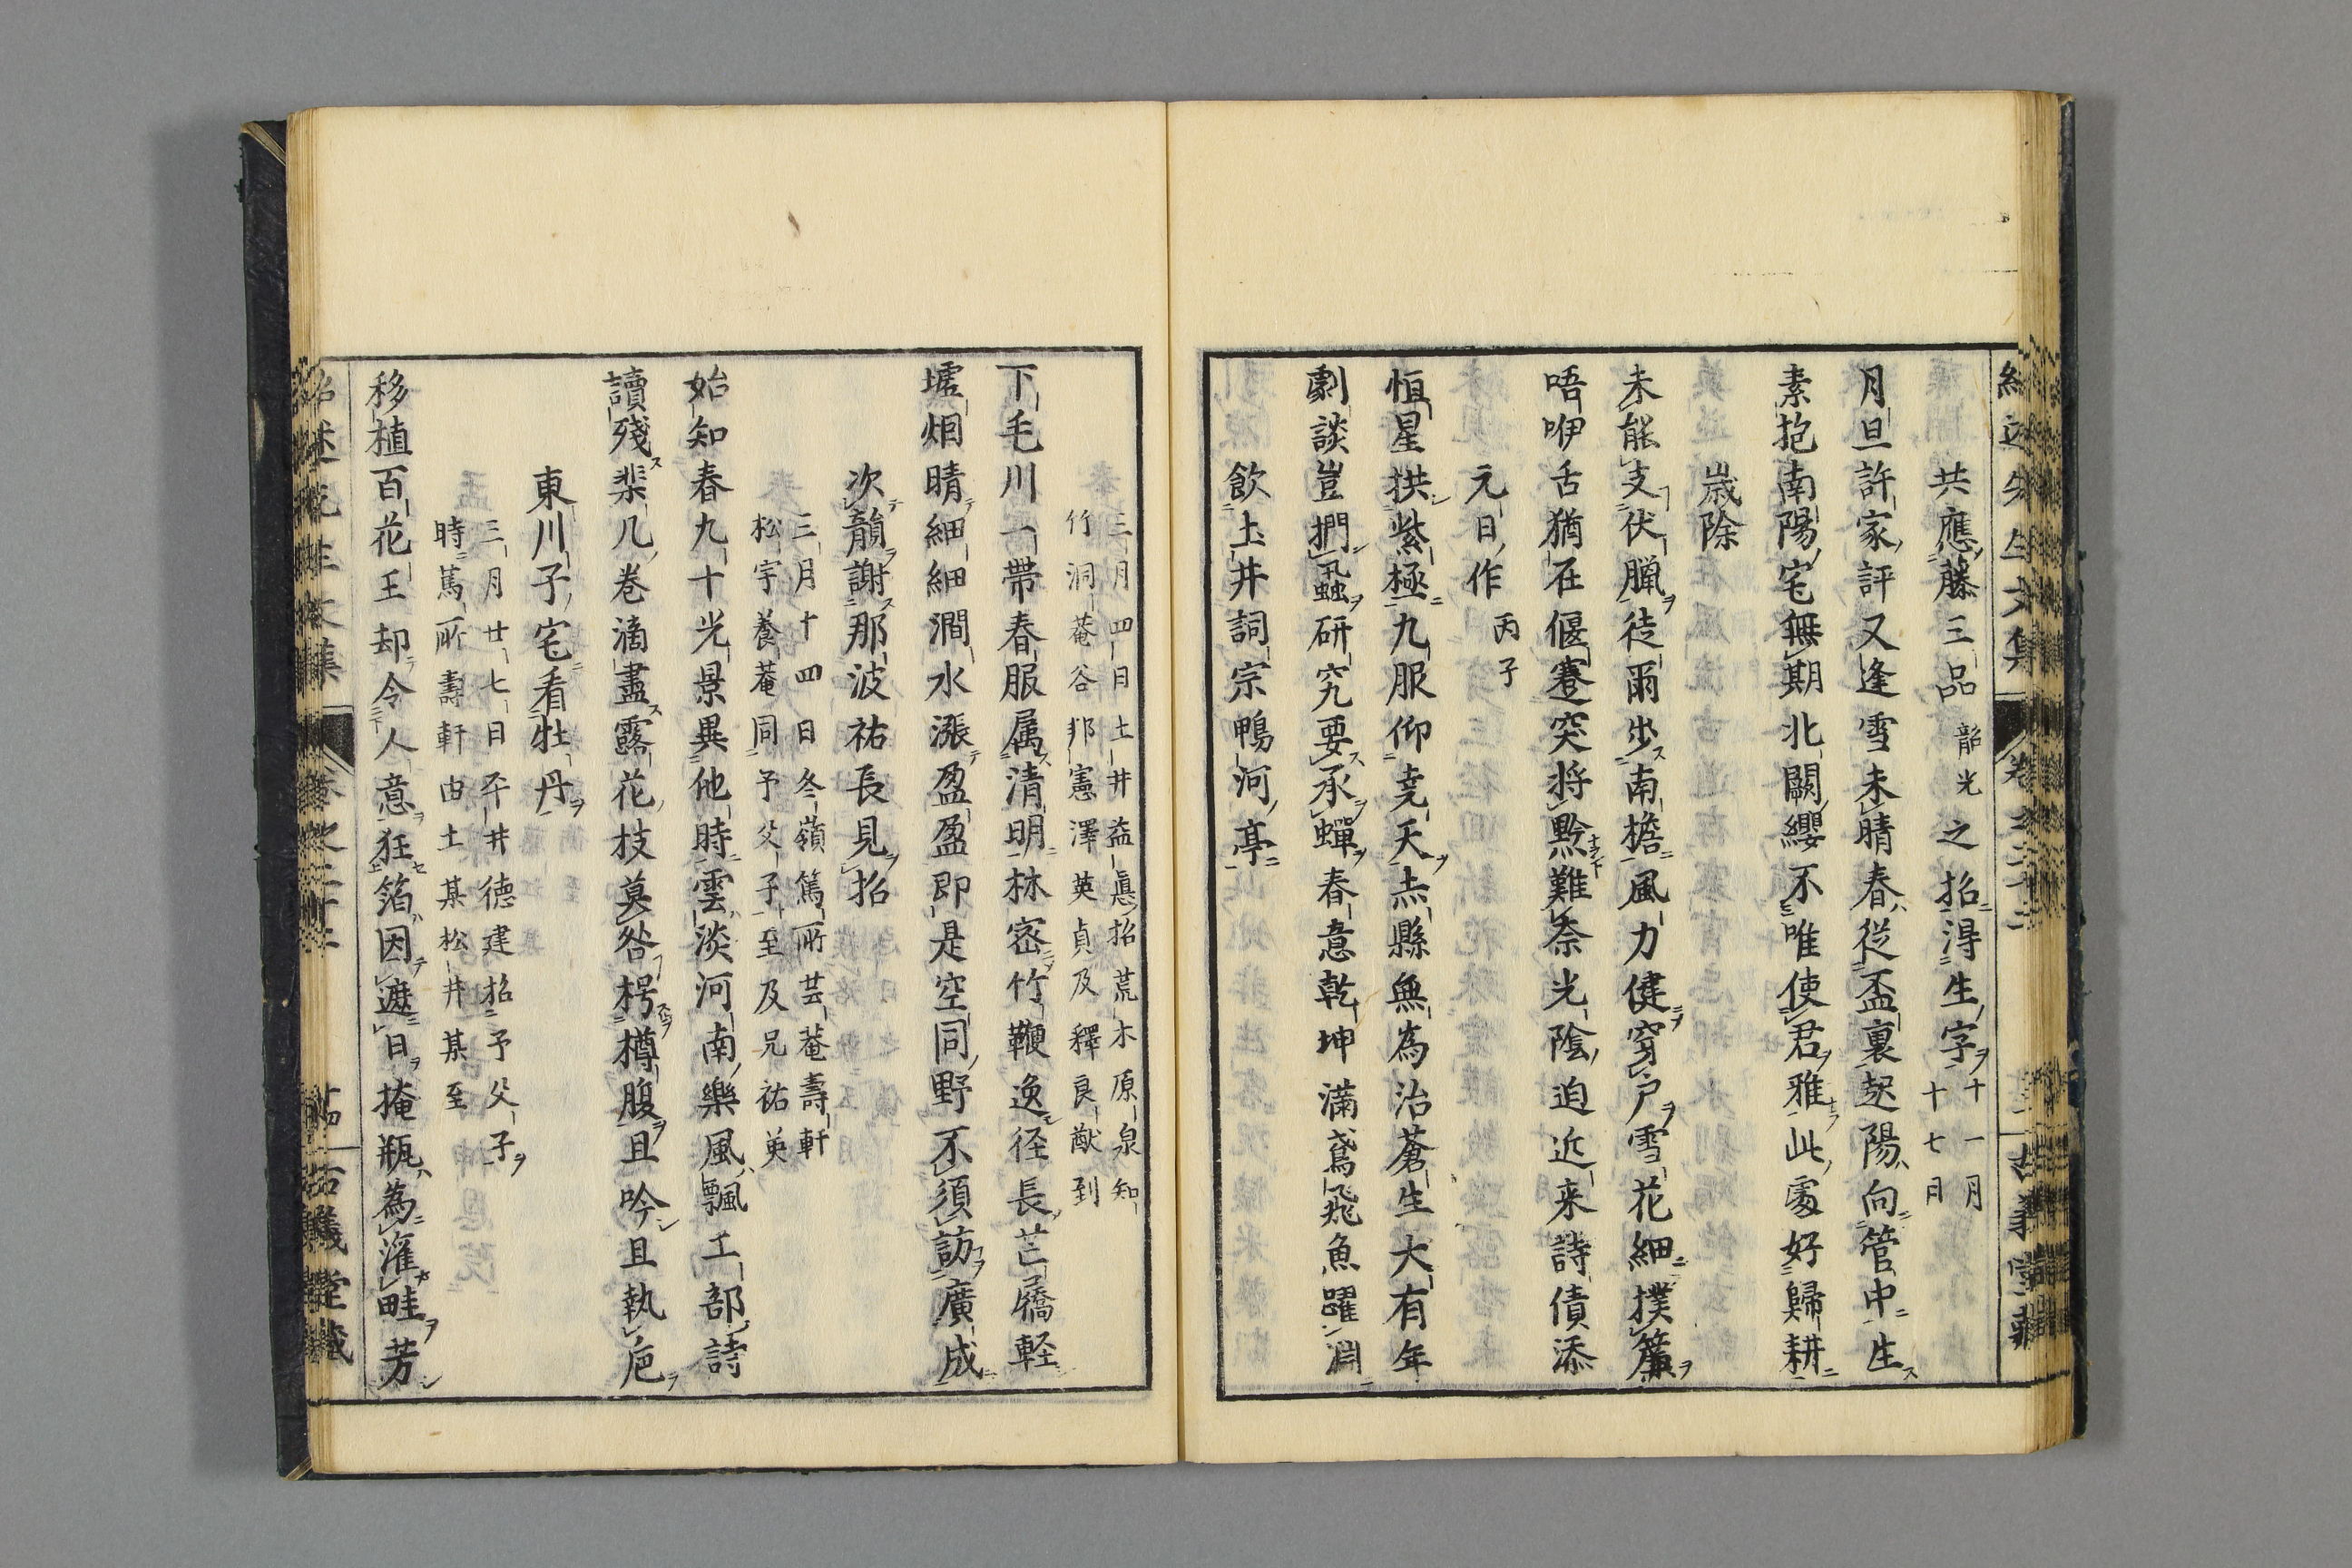 紹述先生文集 卷之三十 古義堂藏
共應藤三品韶光之招得生字十一月十七月
月旦許家評又逢雪未晴春從盃裏起陽向管中生
素抱南陽宅無期北闕纓不唯使君雅此處好歸耕
歳除
未能支伏臘徒爾步南檐風力健穿戸雪花細撲簾
唔咿舌猶在偃蹇突将黔難奈光陰迫近来詩債添
元日作丙子
恒星拱紫極九服仰尭天赤縣無為治蒼生大有年
劇談豈捫蝨研究要承蟬春意乾坤滿鳶飛魚躍淵
飲土井詞宗鴨河亭
三月四日土井益眞招荒木原泉知
竹洞菴谷邦憲澤英貞及釋良猷到
下毛川一帶春服属清明林密竹鞭逸径長芒屩軽
墟烟晴細細澗水漲盈盈即是空同野不須訪廣成
次韻謝那波祐長見招
三月十四日冬嶺篤所芸菴壽軒
松宇養菴同予父子至及兄祐英
始知春九十光景異他時雲淡河南樂風飄工部詩
讀殘棐几卷滴盡露花枝莫咎枵樽腹且吟且執巵
東川子宅看牡丹
三月廿七日平井德建招予父子
時篤所壽軒由土某松井某至
移植百花王却令人意狂箔因遮日掩瓶為灌畦芳
古義堂藏